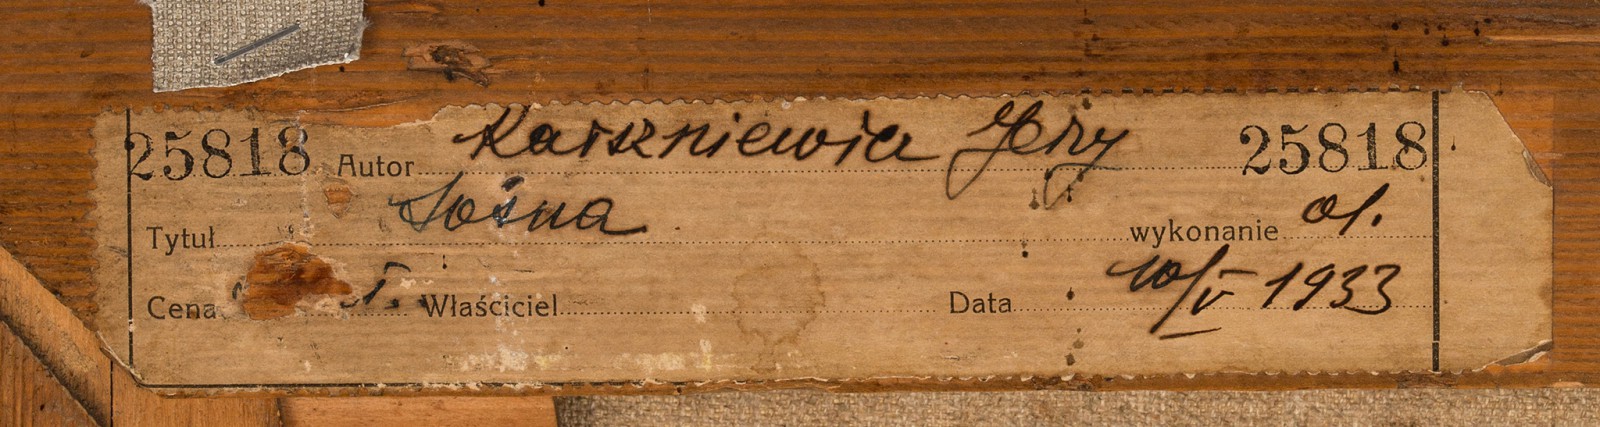 25818 Autor Karszniewicz Jerzy 25818
Tytuł Sosna wykonanie ol.
Cena Właściciel Data 10/V 1933